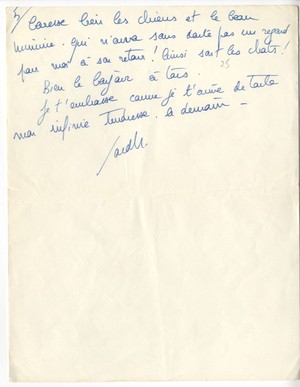 5/ Caresse bien les chiens et le beau
minime. qui n'aura sans doute pas un regard
pour moi à son retour! Ainsi sont les chats!
Bien le bonjour à tous.
Je t'embrasse comme je t'aime de toute
mon infinie tendresse. à demain -